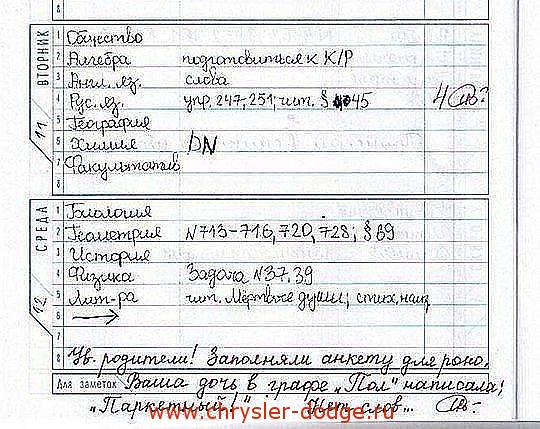 8
ВТОРНИК
11
1 Общество
2 Алгебра подготовиться к К/Р
3 Англ. яз. слова
4 Рус. яз. упр. 247, 251; чит. § 45 4
5 География
6 Химия DN
7 Факультатив
8
СРЕДА
12
1 Биология
2 Геометрия N713-716, 720, 728; § 69
3 История
4 Физика Задача N37, 39
5 Лит-ра чит. Мёртвые души; стих. наиз
6 →
7
8 Ув. родители! Заполняли анкету для роно.
Для заметок Ваша дочь в графе „Пол" написала;
„Паркетный!" Нет слов...
www.chrysler-dodge.ru